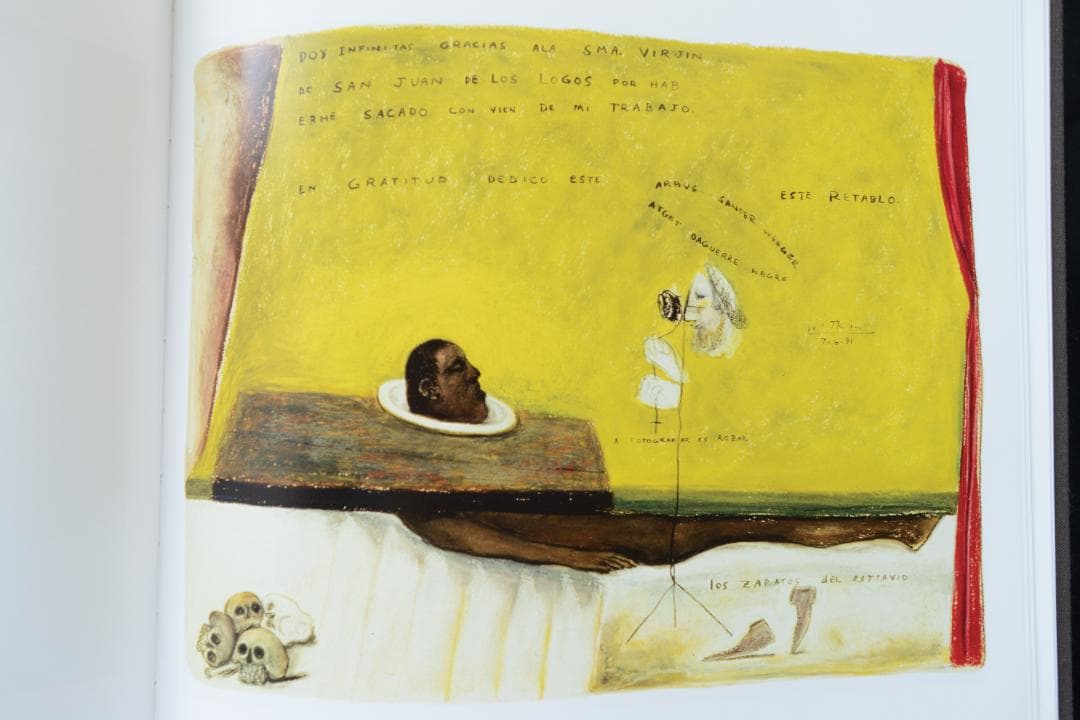 DOY INFINITAS GRACIAS ALA SMA. VIRJIN
DE SAN JUAN DE LOS LOGOS POR HAB
ERME SACADO CON VIEN DE MI TRABAJO.
EN GRATITUD DEDICO ESTE
ESTE RETABLO.
ARBUS SANDER WEEGEE
ATGET DAGUERRE NEGRE
7-6-91
A FOTOGRAFAR ES ROZAR
los ZAPATOS del